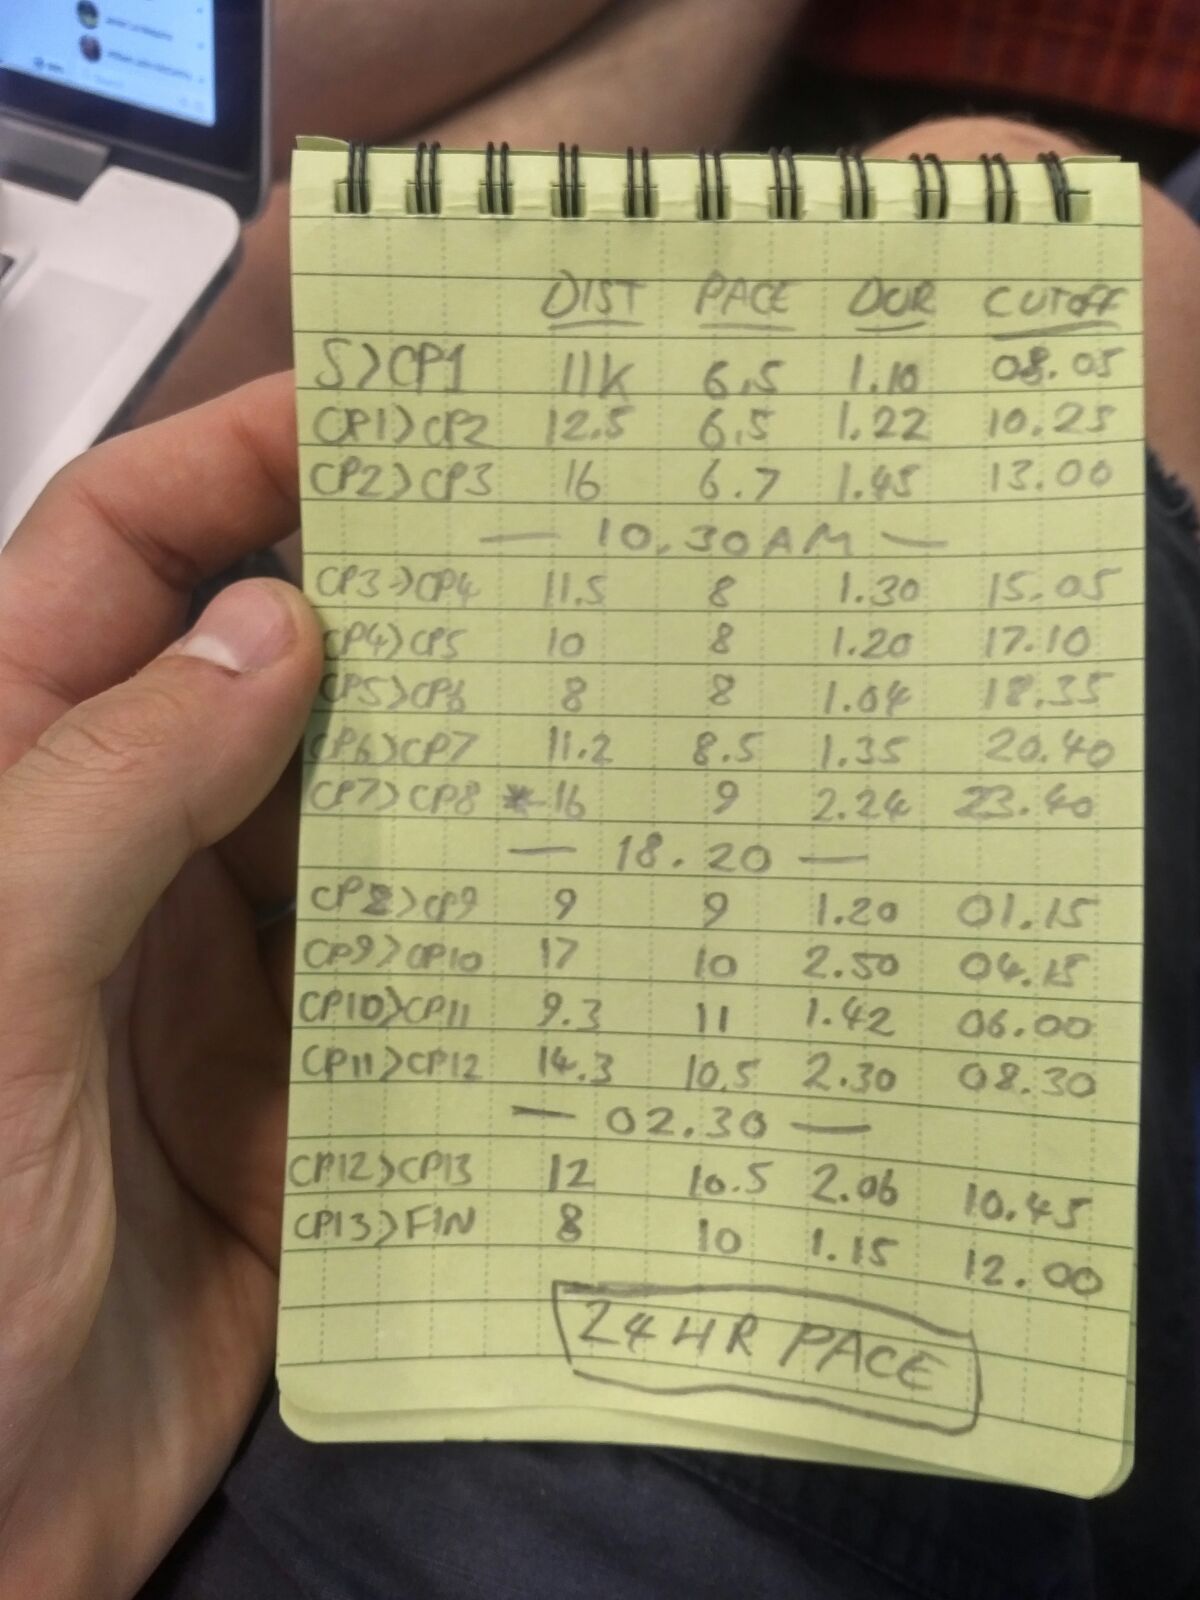 DIST PACE DUR CUTOFF
S>CP1 11K 6.5 1.10 08.05
CP1>CP2 12.5 6.5 1.22 10.25
CP2>CP3 16 6.7 1.45 13.00
— 10.30AM —
CP3>CP4 11.5 8 1.30 15.05
CP4>CP5 10 8 1.20 17.10
CP5>CP6 8 8 1.04 18.35
CP6>CP7 11.2 8.5 1.35 20.40
CP7>CP8 *16 9 2.24 23.40
— 18.20 —
CP8>CP9 9 9 1.20 01.15
CP9>CP10 17 10 2.50 04.15
CP10>CP11 9.3 11 1.42 06.00
CP11>CP12 14.3 10.5 2.30 08.30
— 02.30 —
CP12>CP13 12 10.5 2.06 10.45
CP13>FIN 8 10 1.15 12.00
24 HR PACE